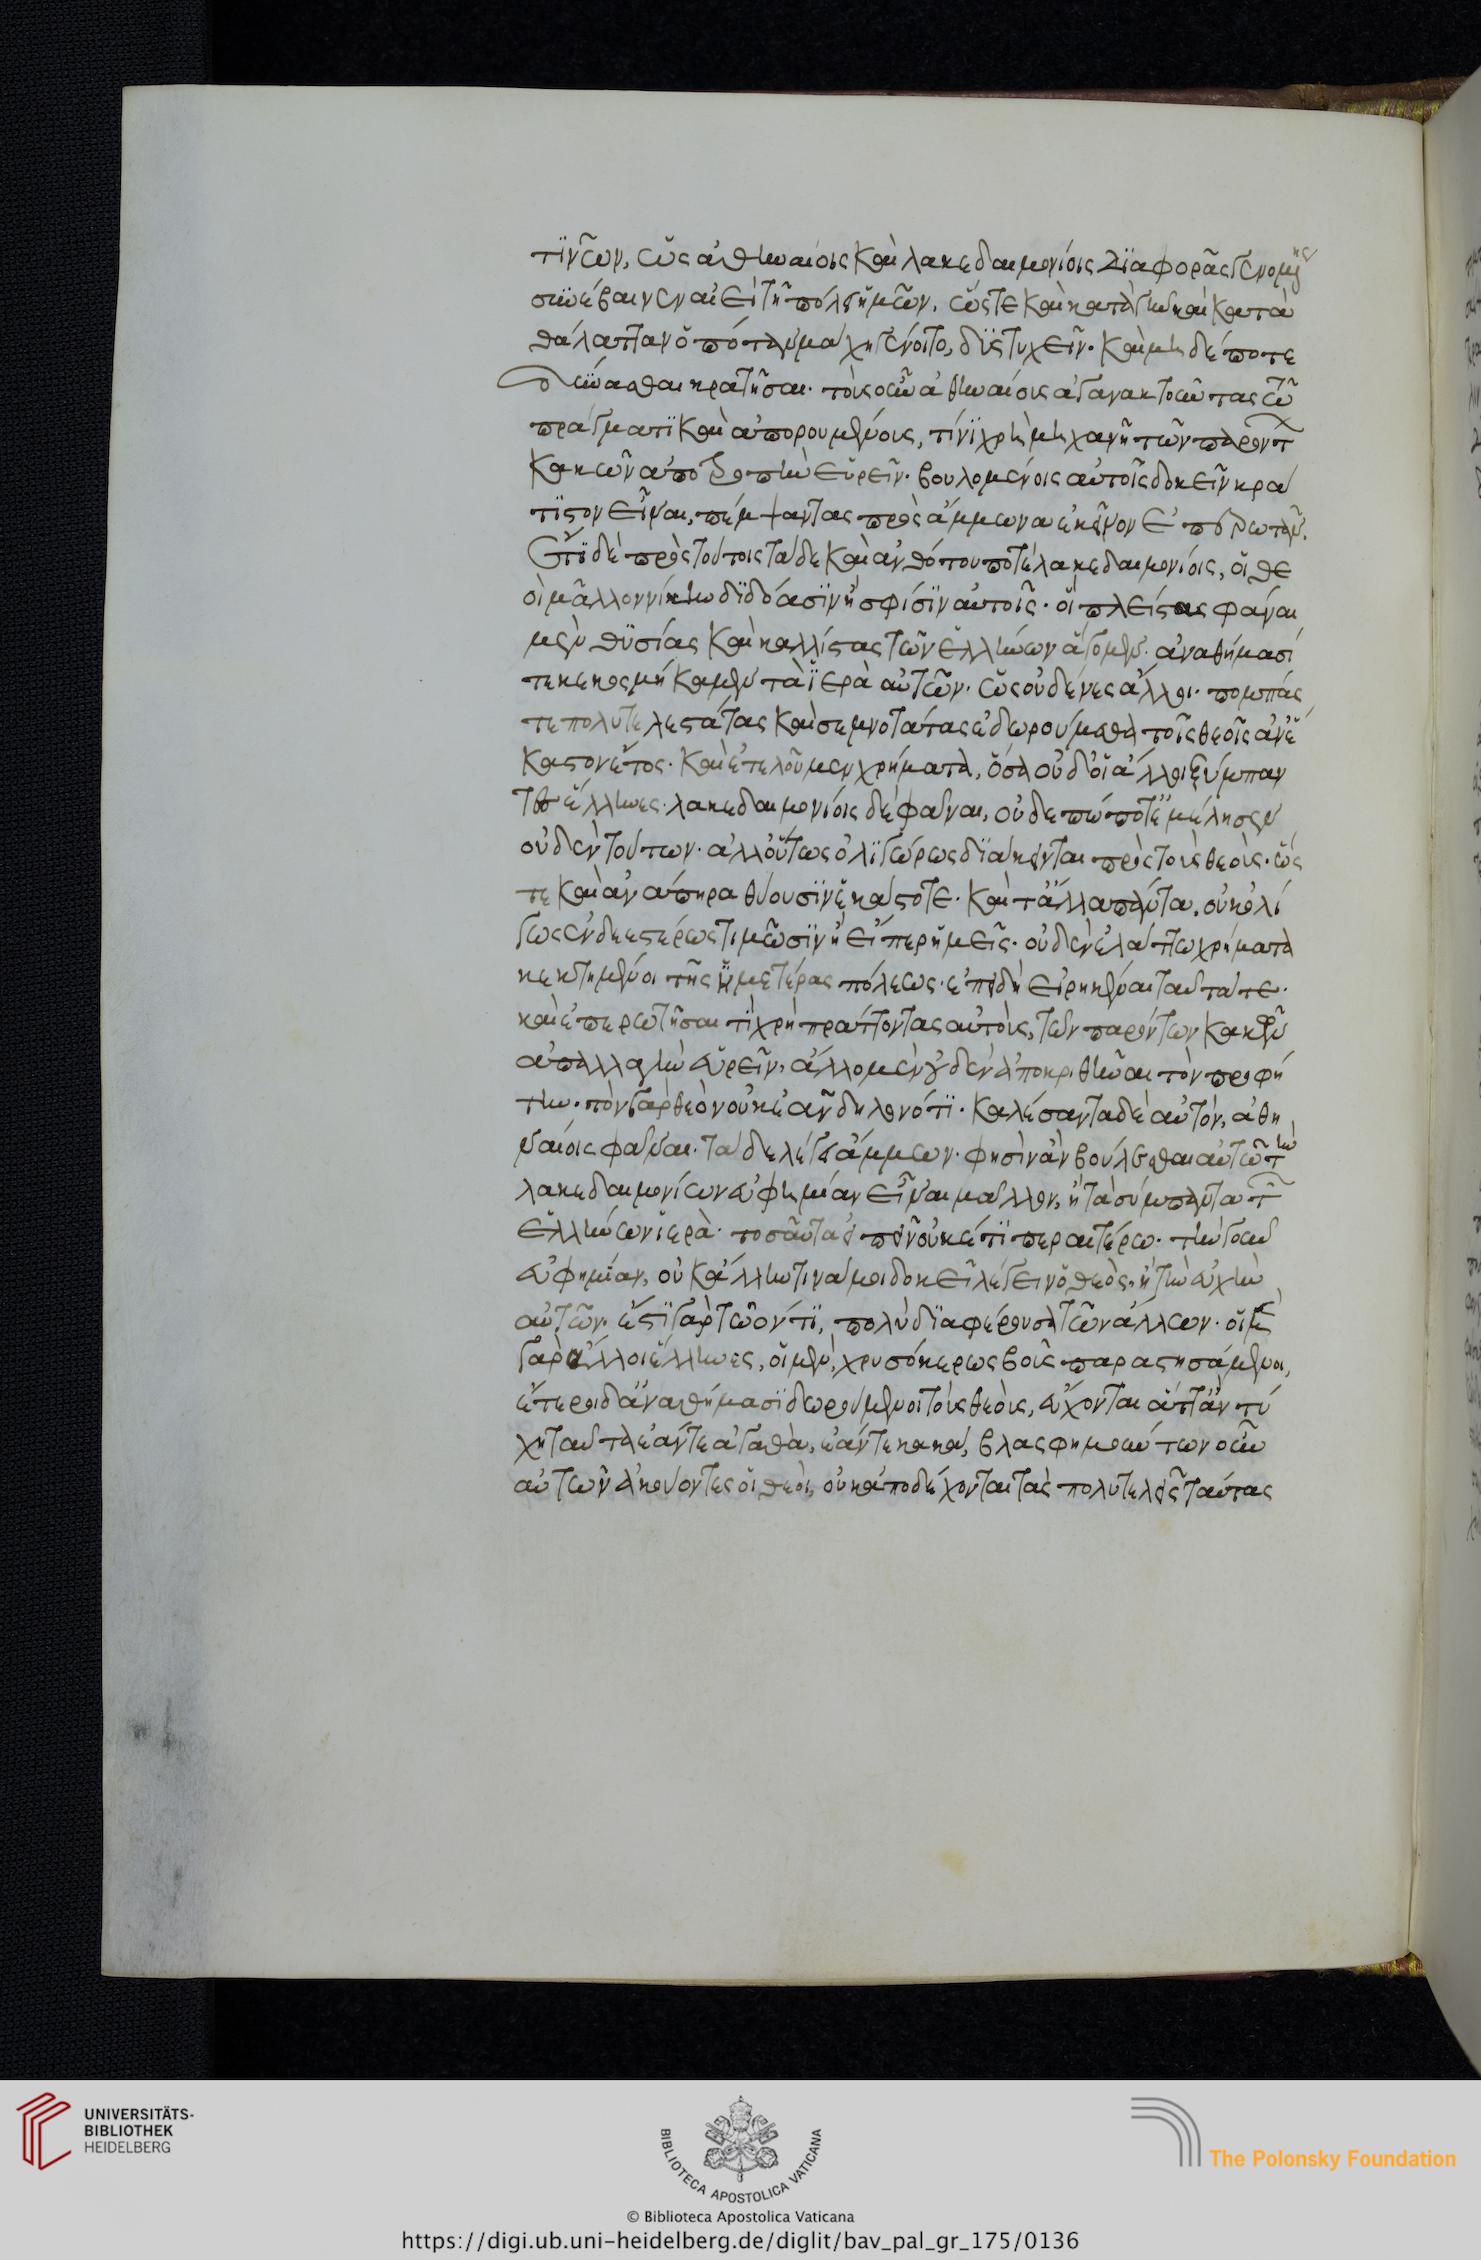 τινων, ὡς ἀθηναίοις καὶ λακεδαιμονίοις διαφορᾶς γενομένης
συνέβαινεν αἰεὶ τῆ πόλει ἡμῶν, ὥστε καὶ κατὰ γῆν καὶ κατὰ
θάλατταν ὁπότε μάχη γένοιτο, δυστυχεῖν. καὶ μηδέποτε
δύνασθαι κρατῆσαι. τοὺς οὖν ἀθηναίους ἀγανακτοῦντας τῶ
πράγματι καὶ ἀπορουμένους, τίνι χρὴ μηχανῆ τῶν παρόντων
κακῶν ἀποτροπὴν εὑρεῖν. βουλομένοις αὐτοῖς δοκεῖν κρά
τιστον εἶναι, πέμψαντας πρὸς ἄμμωνα ἐκεῖνον ἐπερωτᾶν.
ἔτι δὲ πρὸς τούτοις τάδε καὶ ἀνθότου ποτὲ λακεδαιμονίοις, οἱ θε
οὶ μᾶλλον νίκην διδόασιν ἢ σφίσιν αὐτοῖς. οἳ πλείστας φάναι
μὲν θυσίας καὶ καλλίστας τῶν ἑλλήνων ἄγομεν. ἀναθήμασί
τε κεκοσμήκαμεν τὰ ἱερὰ αὐτῶν. ὡς οὐδένες ἄλλοι. πομπάς
τε πολυτελεστάτας καὶ σεμνοτάτας ἐδωρούμεθα τοῖς θεοῖς ἀν' ἕ
καστον ἔτος. καὶ ἐτελοῦμεν χρήματα, ὅσα οὐδ' οἱ ἄλλοι ξύμπαν
τες ἕλληνες. λακεδαιμονίοις δὲ φάναι, οὐδεπώποτε ἐμέλησεν
οὐδὲν τούτων. ἀλλ' οὕτως ὀλιγώρως διάκεινται πρὸς τοὺς θεοὺς. ὥς
τε καὶ ἀνάπηρα θύουσιν ἑκάστοτε. καὶ τἄλλα πάντα, οὐκ ὀλί
γως ἐνδεεστέρως τιμῶσιν ἢ εἴπερ ἡμεῖς. οὐδὲν ἐλάττω χρήματα
κεκτημένοι τῆς ἡμετέρας πόλεως. ἐπειδὴ εἰρηκέναι ταῦτά τε.
καὶ ἐπερωτῆσαι τί χρὴ πράττοντας αὐτοὺς, τῶν παρόντων κακῶν
ἀπαλλαγὴν εὑρεῖν, ἄλλο μὲν οὐδὲν ἀποκριθῆναι τὸν προφή
την. τὸν γὰρ θεὸν οὐκ ἐᾶν δηλονότι. καλέσαντα δὲ αὐτόν, ἀθη
ναίοις φάναι. τάδε λέγει ἄμμων. φησὶν ἂν βούλεσθαι αὐτῶ τὴν
λακεδαιμονίων εὐφημίαν εἶναι μᾶλλον, ἢ τὰ σύμπαντα τῶν
ἑλλήνων ἱερὰ. τοσαῦτα εἰπεῖν οὐκέτι περαιτέρω. τὴν γοῦν
εὐφημίαν, οὐκ ἄλλην τινά μοι δοκεῖ λέγειν ὁ θεὸς, ἢ τὴν εὐχὴν
αὐτῶν. ἔστι γὰρ τῶ ὄντι, πολὺ διαφέρουσα τῶν ἄλλων. οἱ μὲν
γὰρ ἄλλοι ἕλληνες, οἱ μὲν, χρυσόκερως βοῦς παραστησάμενοι,
ἕτεροι δ' ἀναθήμασι δωρούμενοι τοὺς θεοὺς, εὔχονται ἅττ' ἂν τύ
χη ταῦτα ἐάντε ἀγαθὰ, ἐάντε κακά, βλασφημούντων οὖν
αὐτῶν ἀκούοντες οἱ θεοὶ, οὐκ ἀποδέχονται τὰς πολυτελεῖς ταύτας
UNIVERSITÄTS-
BIBLIOTHEK
HEIDELBERG
BIBLIOTECA APOSTOLICA VATICANA
The Polonsky Foundation
© Biblioteca Apostolica Vaticana
https://digi.ub.uni-heidelberg.de/diglit/bav_pal_gr_175/0136